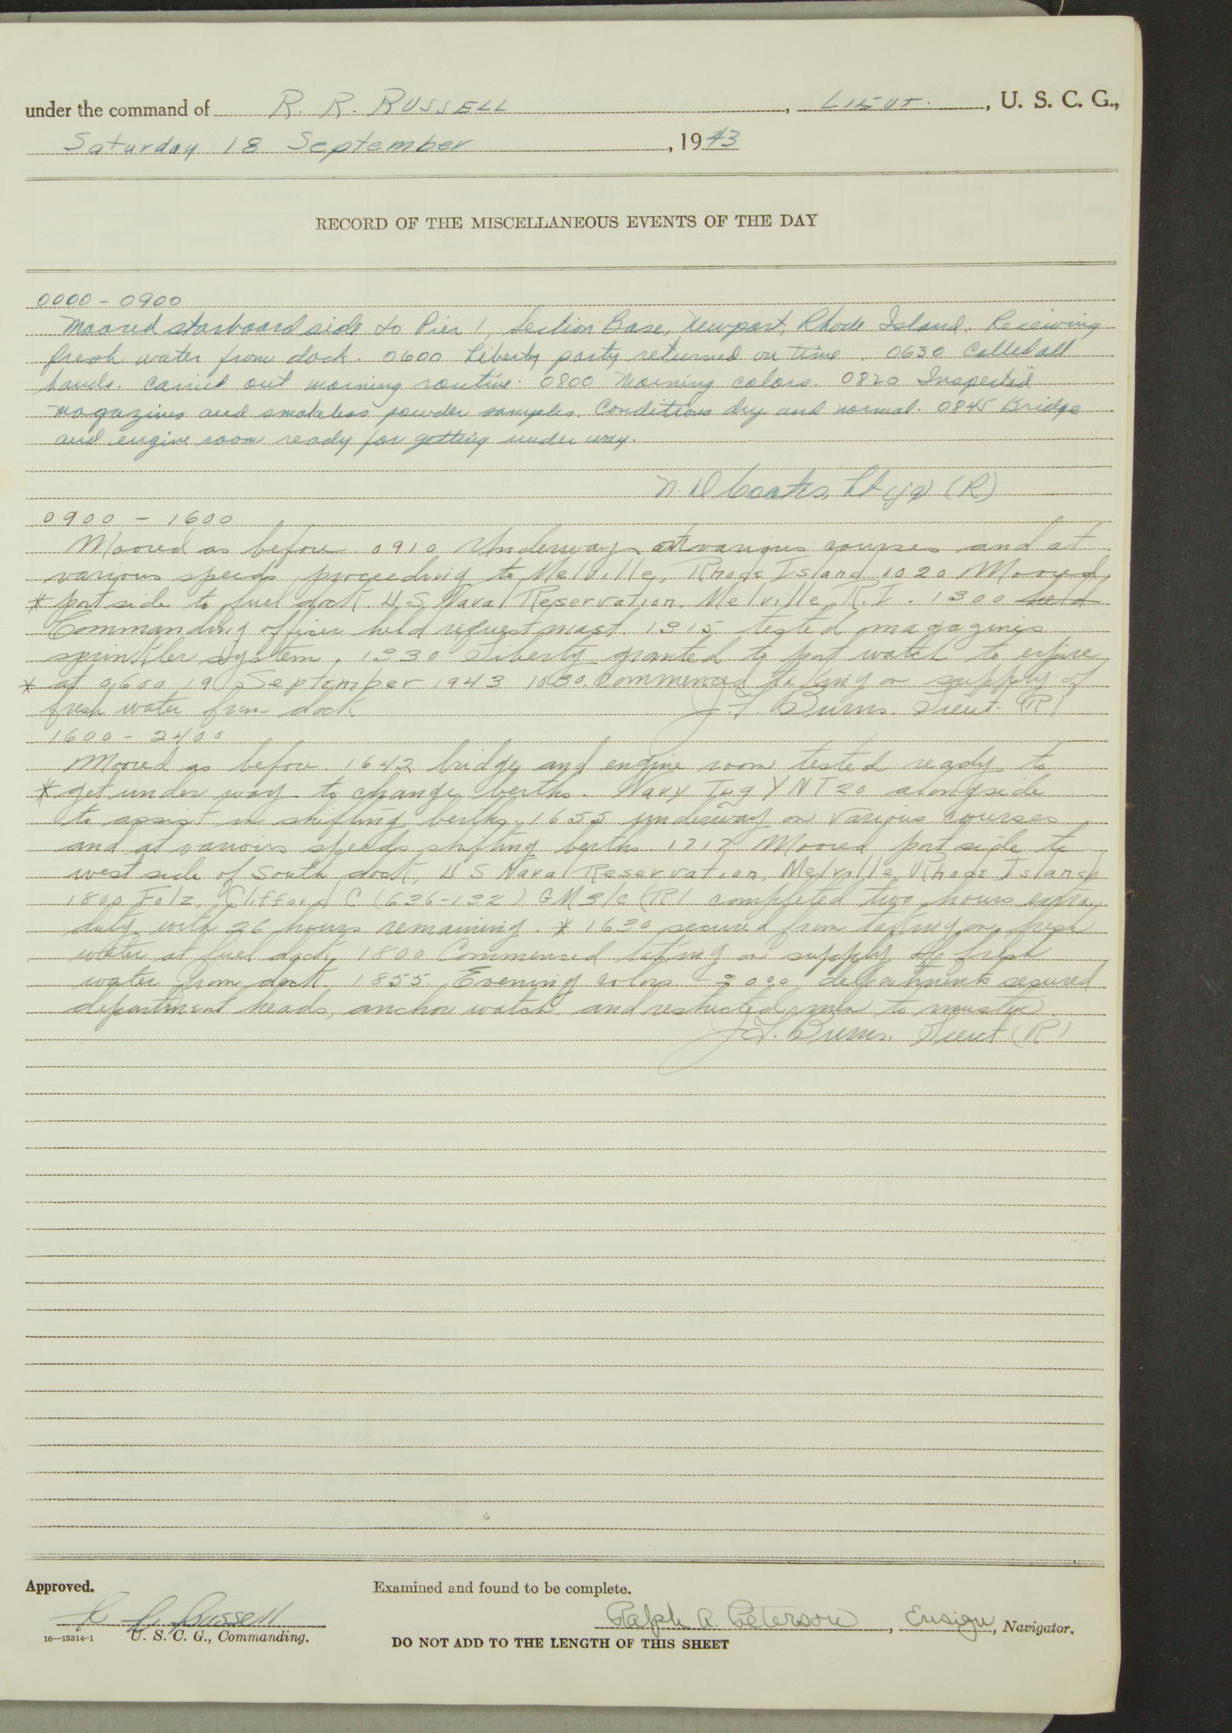 under the command of R. R. RUSSELL, LIEUT., U. S. C. G.,
Saturday 18 September, 1943
RECORD OF THE MISCELLANEOUS EVENTS OF THE DAY
0000 - 0900
Moored starboard side to Pier 1, Section Base, Newport, Rhode Island. Receiving
fresh water from dock. 0600 Liberty party returned on time. 0630 Called all
hands. Carried out morning routine. 0800 Morning colors. 0820 Inspected
magazines and smokeless powder samples. Conditions dry and normal. 0845 Bridge
and engine room ready for getting under way.
N. D. Coates, Lt (jg) (R)
0900 - 1600
Moored as before 0910 Underway at various courses and at
various speeds, proceeding to Melville, Rhode Island 1020 Moored
* port side to fuel dock. U S Naval Reservation, Melville, R. I. 1300 held
Commanding officer held request mast. 1315 tested magazines
sprinkler system, 1330 Liberty granted to port watch to expire
* at 0600 19 September 1943 1030 commenced taking on supply of
fresh water from dock J. F. Burns. Lieut. (R)
1600 - 2400
Moored as before. 1642 bridge and engine room tested ready to
* get under way to change berths. Navy Tug YNT 20 alongside
to assist in shifting berths. 1655 underway on various courses
and at various speeds shifting berths. 1717 Moored port side to
west side of South dock, U S Naval Reservation, Melville, Rhode Island
1800 Folz, Clifford C (626-122) GM 3/c (R) completed two hours extra
duty with 26 hours remaining. * 1630 secured from taking on fresh
water at fuel dock, 1800 Commenced taking on supply of fresh
water from dock. 1855. Evening colors 2000 departments secured
department heads, anchor watch and restricted men to muster.
J. F. Burns. Lieut (R)
Approved. Examined and found to be complete.
R. R. Russell Ralph R. Peterson, Ensign, Navigator.
16—13314-1 U. S. C. G., Commanding.
DO NOT ADD TO THE LENGTH OF THIS SHEET